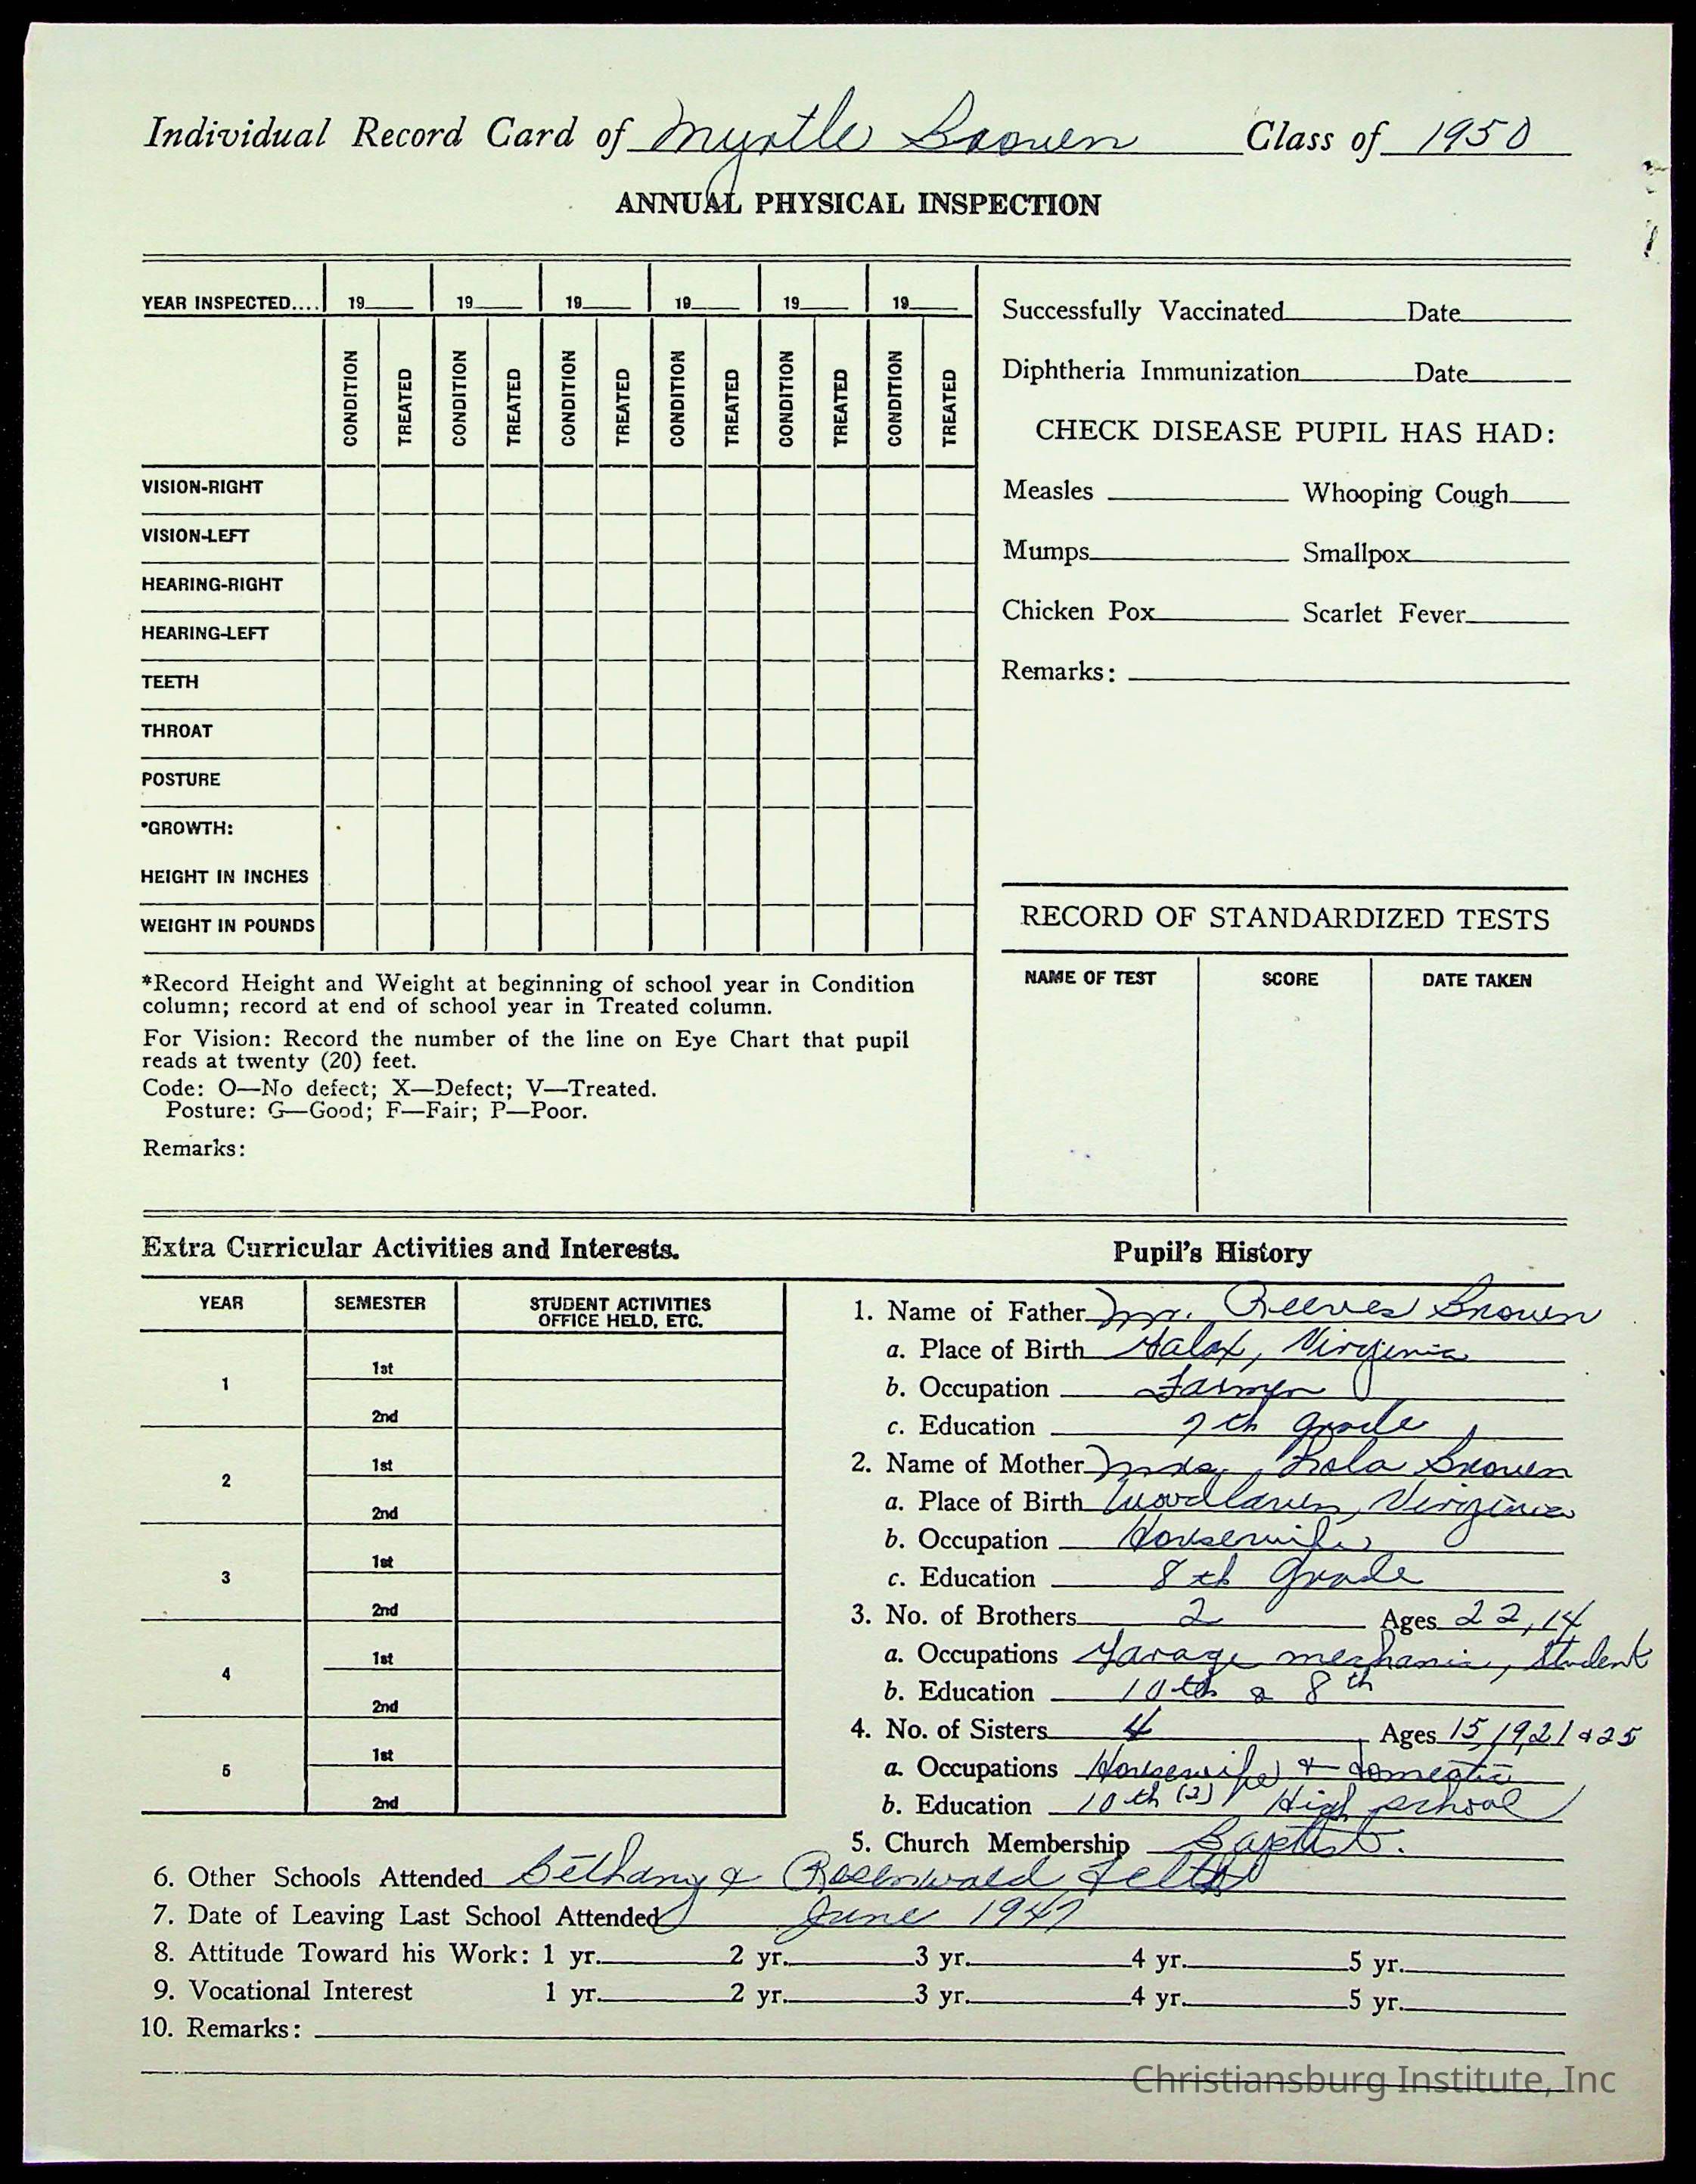 Individual Record Card of Myrtle Brown Class of 1950
ANNUAL PHYSICAL INSPECTION
YEAR INSPECTED.... 19 19 19 19 19 19
CONDITION TREATED CONDITION TREATED CONDITION TREATED CONDITION TREATED CONDITION TREATED CONDITION TREATED
VISION-RIGHT
VISION-LEFT
HEARING-RIGHT
HEARING-LEFT
TEETH
THROAT
POSTURE
*GROWTH:
HEIGHT IN INCHES
WEIGHT IN POUNDS
*Record Height and Weight at beginning of school year in Condition
column; record at end of school year in Treated column.
For Vision: Record the number of the line on Eye Chart that pupil
reads at twenty (20) feet.
Code: O—No defect; X—Defect; V—Treated.
Posture: G—Good; F—Fair; P—Poor.
Remarks:
Successfully Vaccinated Date
Diphtheria Immunization Date
CHECK DISEASE PUPIL HAS HAD:
Measles Whooping Cough
Mumps Smallpox
Chicken Pox Scarlet Fever
Remarks:
RECORD OF STANDARDIZED TESTS
NAME OF TEST SCORE DATE TAKEN
Extra Curricular Activities and Interests.
YEAR SEMESTER STUDENT ACTIVITIES
OFFICE HELD, ETC.
1 1st
2nd
2 1st
2nd
3 1st
2nd
4 1st
2nd
5 1st
2nd
Pupil's History
1. Name of Father Mr. Reeves Brown
a. Place of Birth Galax, Virginia
b. Occupation Farmer
c. Education 7th grade
2. Name of Mother Mrs. Brown
a. Place of Birth Woodlawn, Virginia
b. Occupation Housewife
c. Education 8th Grade
3. No. of Brothers 2 Ages 22, 14
a. Occupations Garage mechanic, Student
b. Education 10th & 8th
4. No. of Sisters 4 Ages 15, 19, 21 & 25
a. Occupations Housewife & domestic
b. Education 10th (2) High school
5. Church Membership Baptist.
6. Other Schools Attended Bethany & Rosenwald Felts
7. Date of Leaving Last School Attended June 1947
8. Attitude Toward his Work: 1 yr. 2 yr. 3 yr. 4 yr. 5 yr.
9. Vocational Interest 1 yr. 2 yr. 3 yr. 4 yr. 5 yr.
10. Remarks:
Christiansburg Institute, Inc